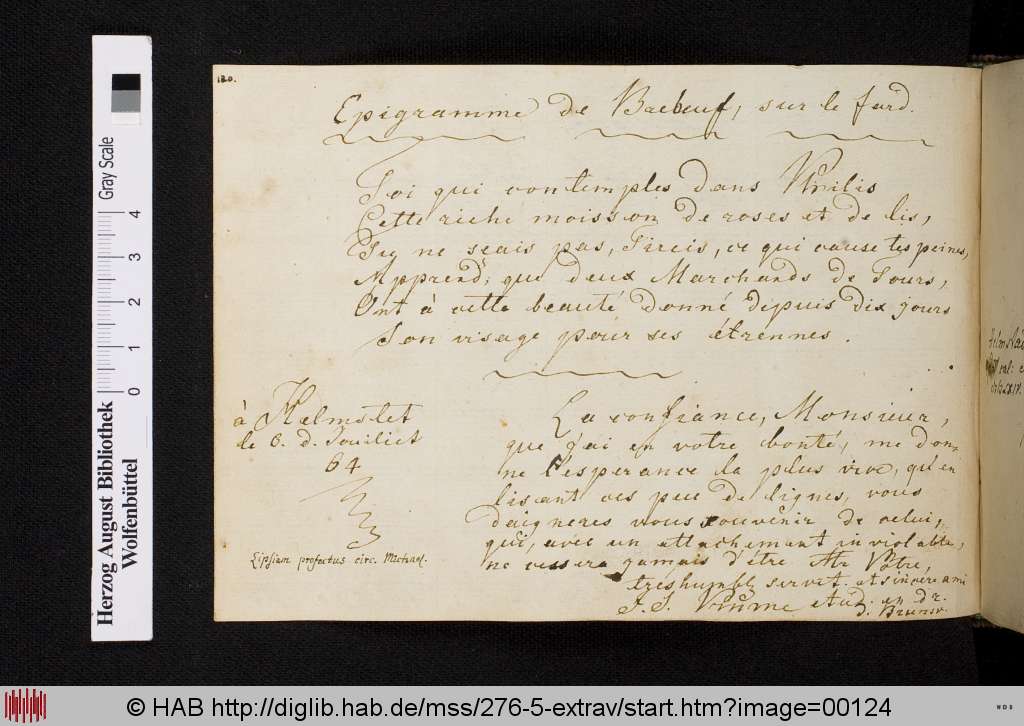 120.
Epigramme de Brebeuf, sur le fard.
Toi qui contemples dans Philis
Cette riche moisson de roses et de lis,
Tu ne scais pas, Tircis, ce qui cause tes peines,
Apprend; que deux Marchands de Tours,
Ont à cette beauté donné depuis dix jours
Son visage pour ses étrennes.
à Helmstet
le 6. d. Jouiliet
64
Lipsiam profectus circ. Michael.
La confiance, Monsieur,
que j'ai en votre bonté, me don-
ne l'esperance la plus vive, qu'en
lisant ces peu de lignes, vous
daigneres vous souvenir de celui,
qui, avec un attachement inviolable,
ne cessera jamais d'être Mr Vôtre,
tréshumble servit. et sincere ami
J. J. etüd: en dr.
Herzog August Bibliothek
Wolfenbüttel
Gray Scale
0 1 2 3 4
© HAB http://diglib.hab.de/mss/276-5-extrav/start.htm?image=00124
WDB